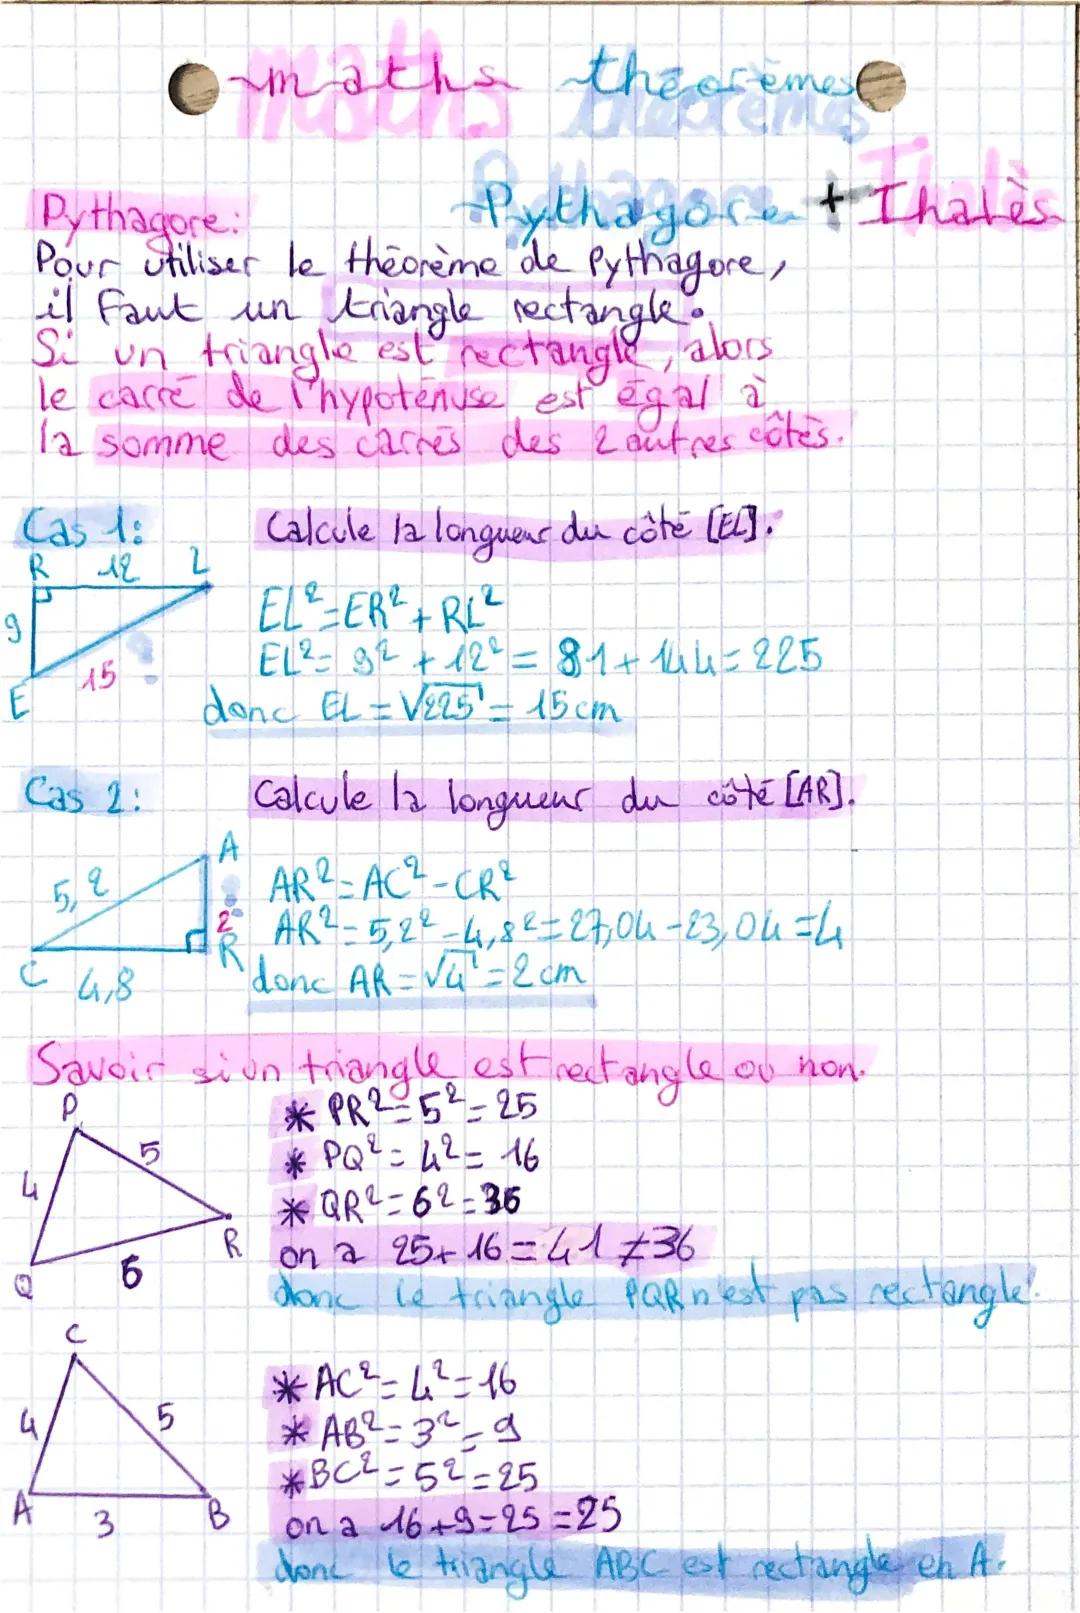 maths théorèmes
Pythagore + Thalès
Pythagore:
Pour utiliser le théorème de Pythagore,
il faut un triangle rectangle.
Si un triangle est rectangle, alors
le carré de l'hypoténuse est égal à
la somme des carrés des 2 autres côtés.
Cas 1:
Calcule la longueur du côté [EL].
R 12 L
9
15 ?
E
EL²=ER²+RL²
EL²= 9² + 12² = 81 + 144 = 225
donc EL = √225 = 15 cm
Cas 2:
Calcule la longueur du côté [AR].
A
5,2
2 ?
R
C 4,8
AR²=AC²-CR²
AR²=5,2²-4,8²=27,04-23,04=4
donc AR=√4=2cm
Savoir si un triangle est rectangle ou non.
P
5
4
R
6
Q
* PR²=5²=25
* PQ²=4²=16
* QR²=6²=36
on a 25+16=41≠36
donc le triangle PQR n'est pas rectangle.
C
4 5
A 3 B
* AC²=4²=16
* AB²=3²=9
* BC²=5²=25
on a 16+9=25=25
donc le triangle ABC est rectangle en A.